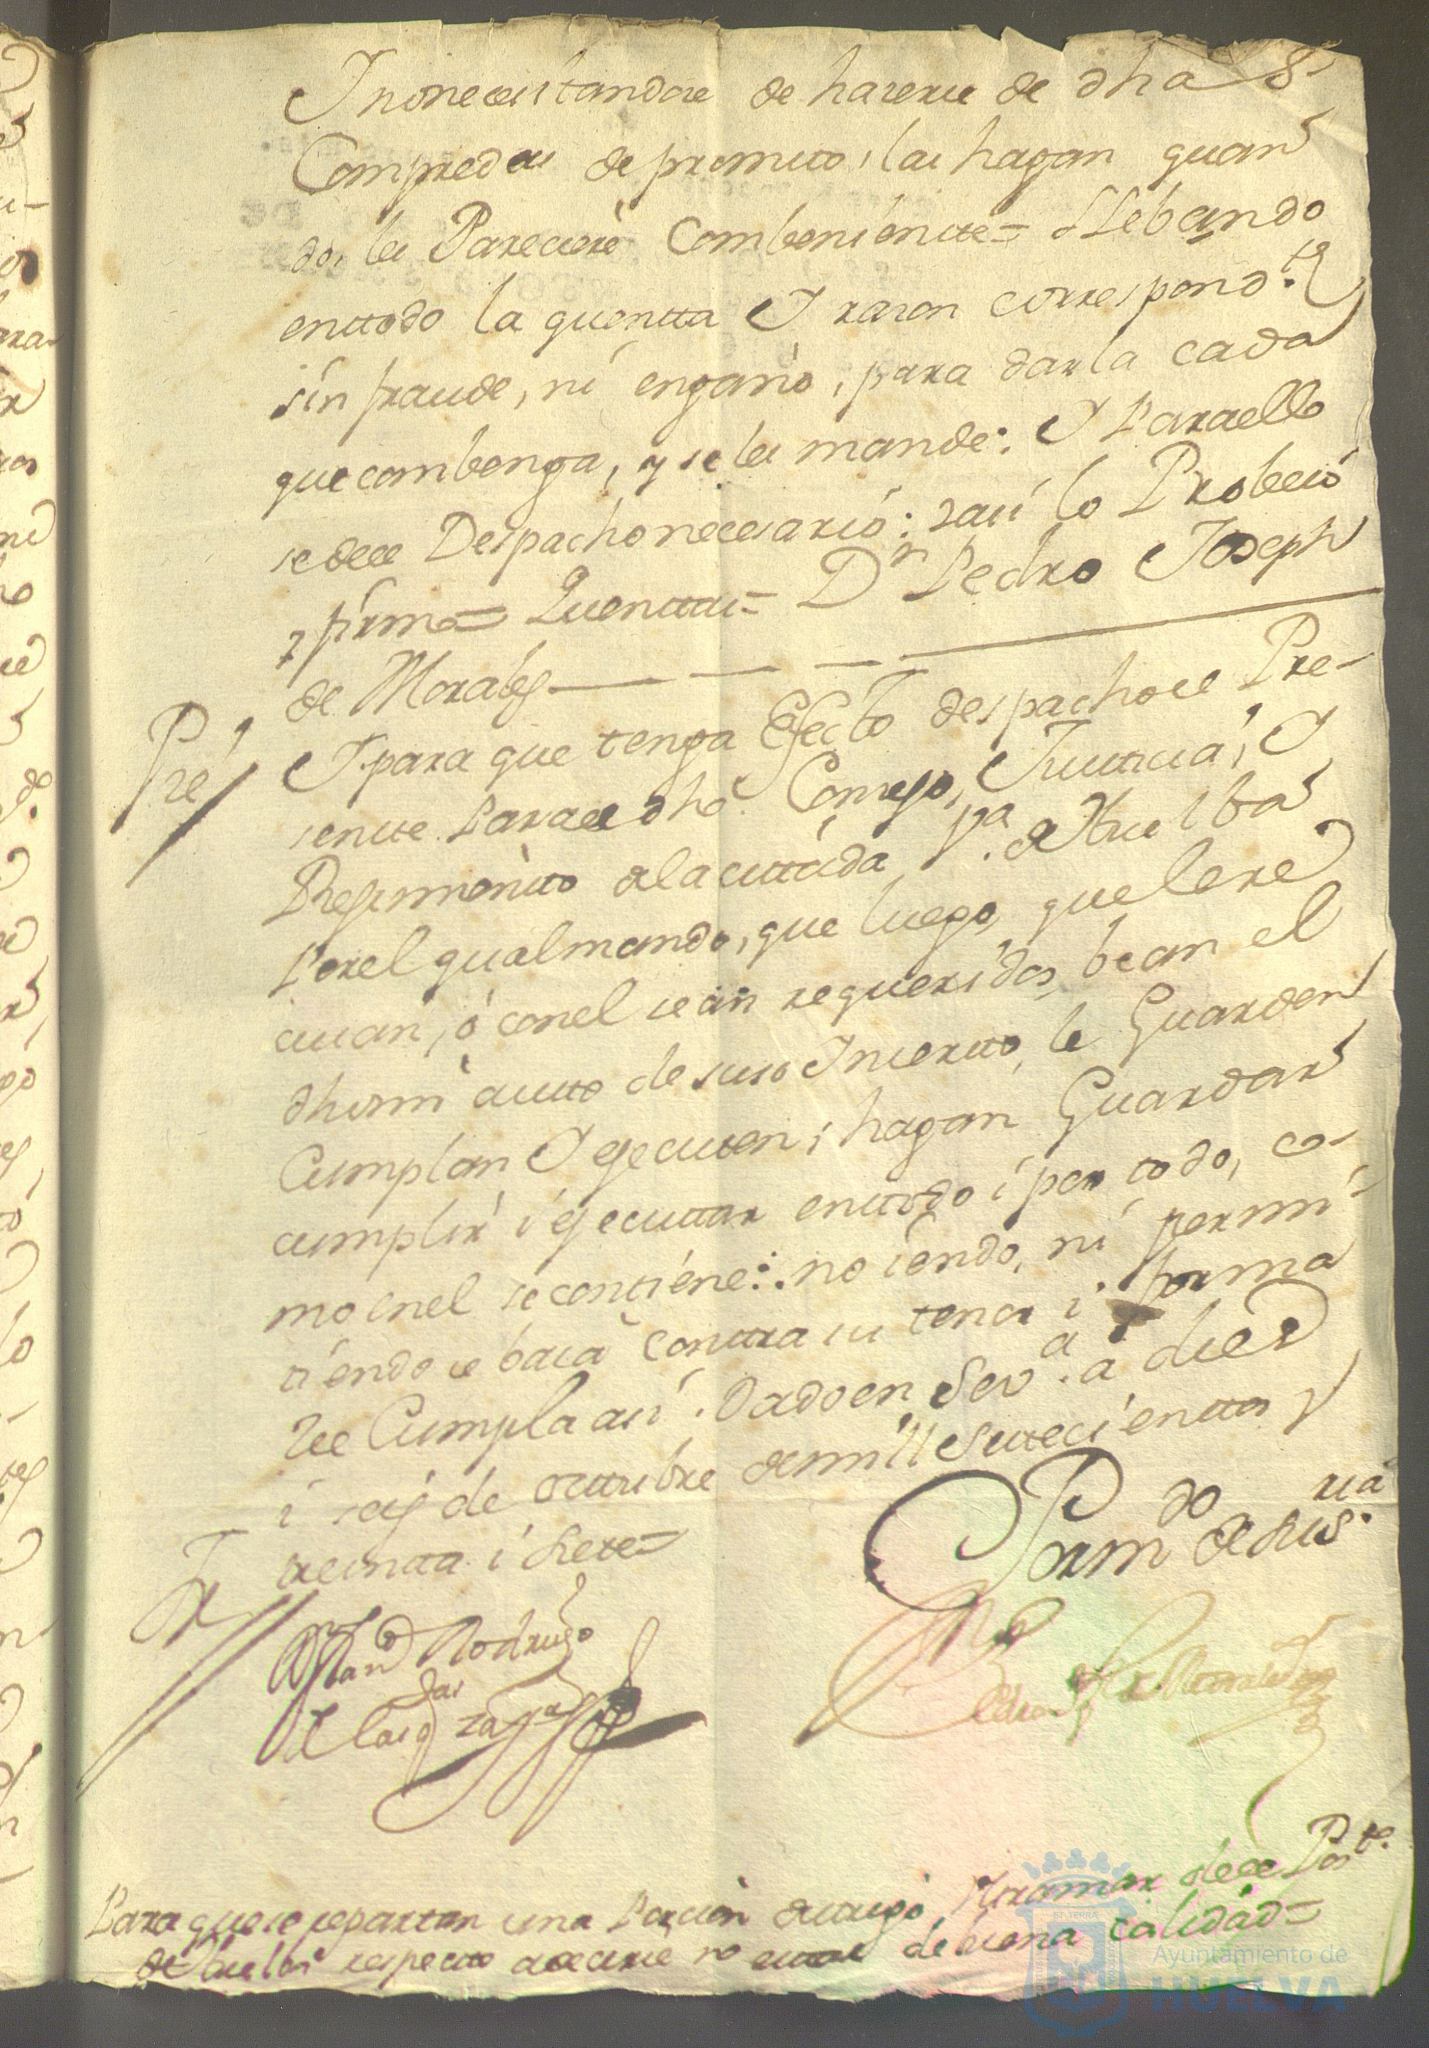 Y no necesitandose de hazerse de dhas
Compredas de promto, las hagan quan
do, les Pareciere Combeniente = Llebando
enttodo la quentta Y razon correspond.te
sin fraude, ni engaño, para darla cada
que combenga, y se les mande: Y Paraello
se dese Despacho necesario: Yasi lo Probeió
y firmo = Quenttas = Dn Pedro Joseph
de Morales
Pre
Y para que tenga Efecto despachose Pre-
sentte Paraese dho Consejo, Justticia, Y
Regimientto dela cittada Va. de Huelba
Porel qual mando, que luego, que lese
cian, ó conel sean requeridos, bean el
dhomi autto de suso Ynsertto, le Guarden
Cumplan Y ejecuten, i hagan Guardar
cumplir i ejecuttar enttodo i por todo, co-
mo enel se contiene: no iendo, ni permi-
tiendo se baia Conttra su tenor i forma
Yse Cumpla asi. Dado en Seva. a diez
i seis de octtubre demill Settecienttos y
treintta i siete =
Por mdo de su sria
Ferd Rodriguez
Pedro Joseph de Morales
Para que se repartan una Porcion detrigo Ytramar dese Pos.to
de Huelba respectto adecirse no estar de buena calidad =
Ayuntamiento de
HUELVA